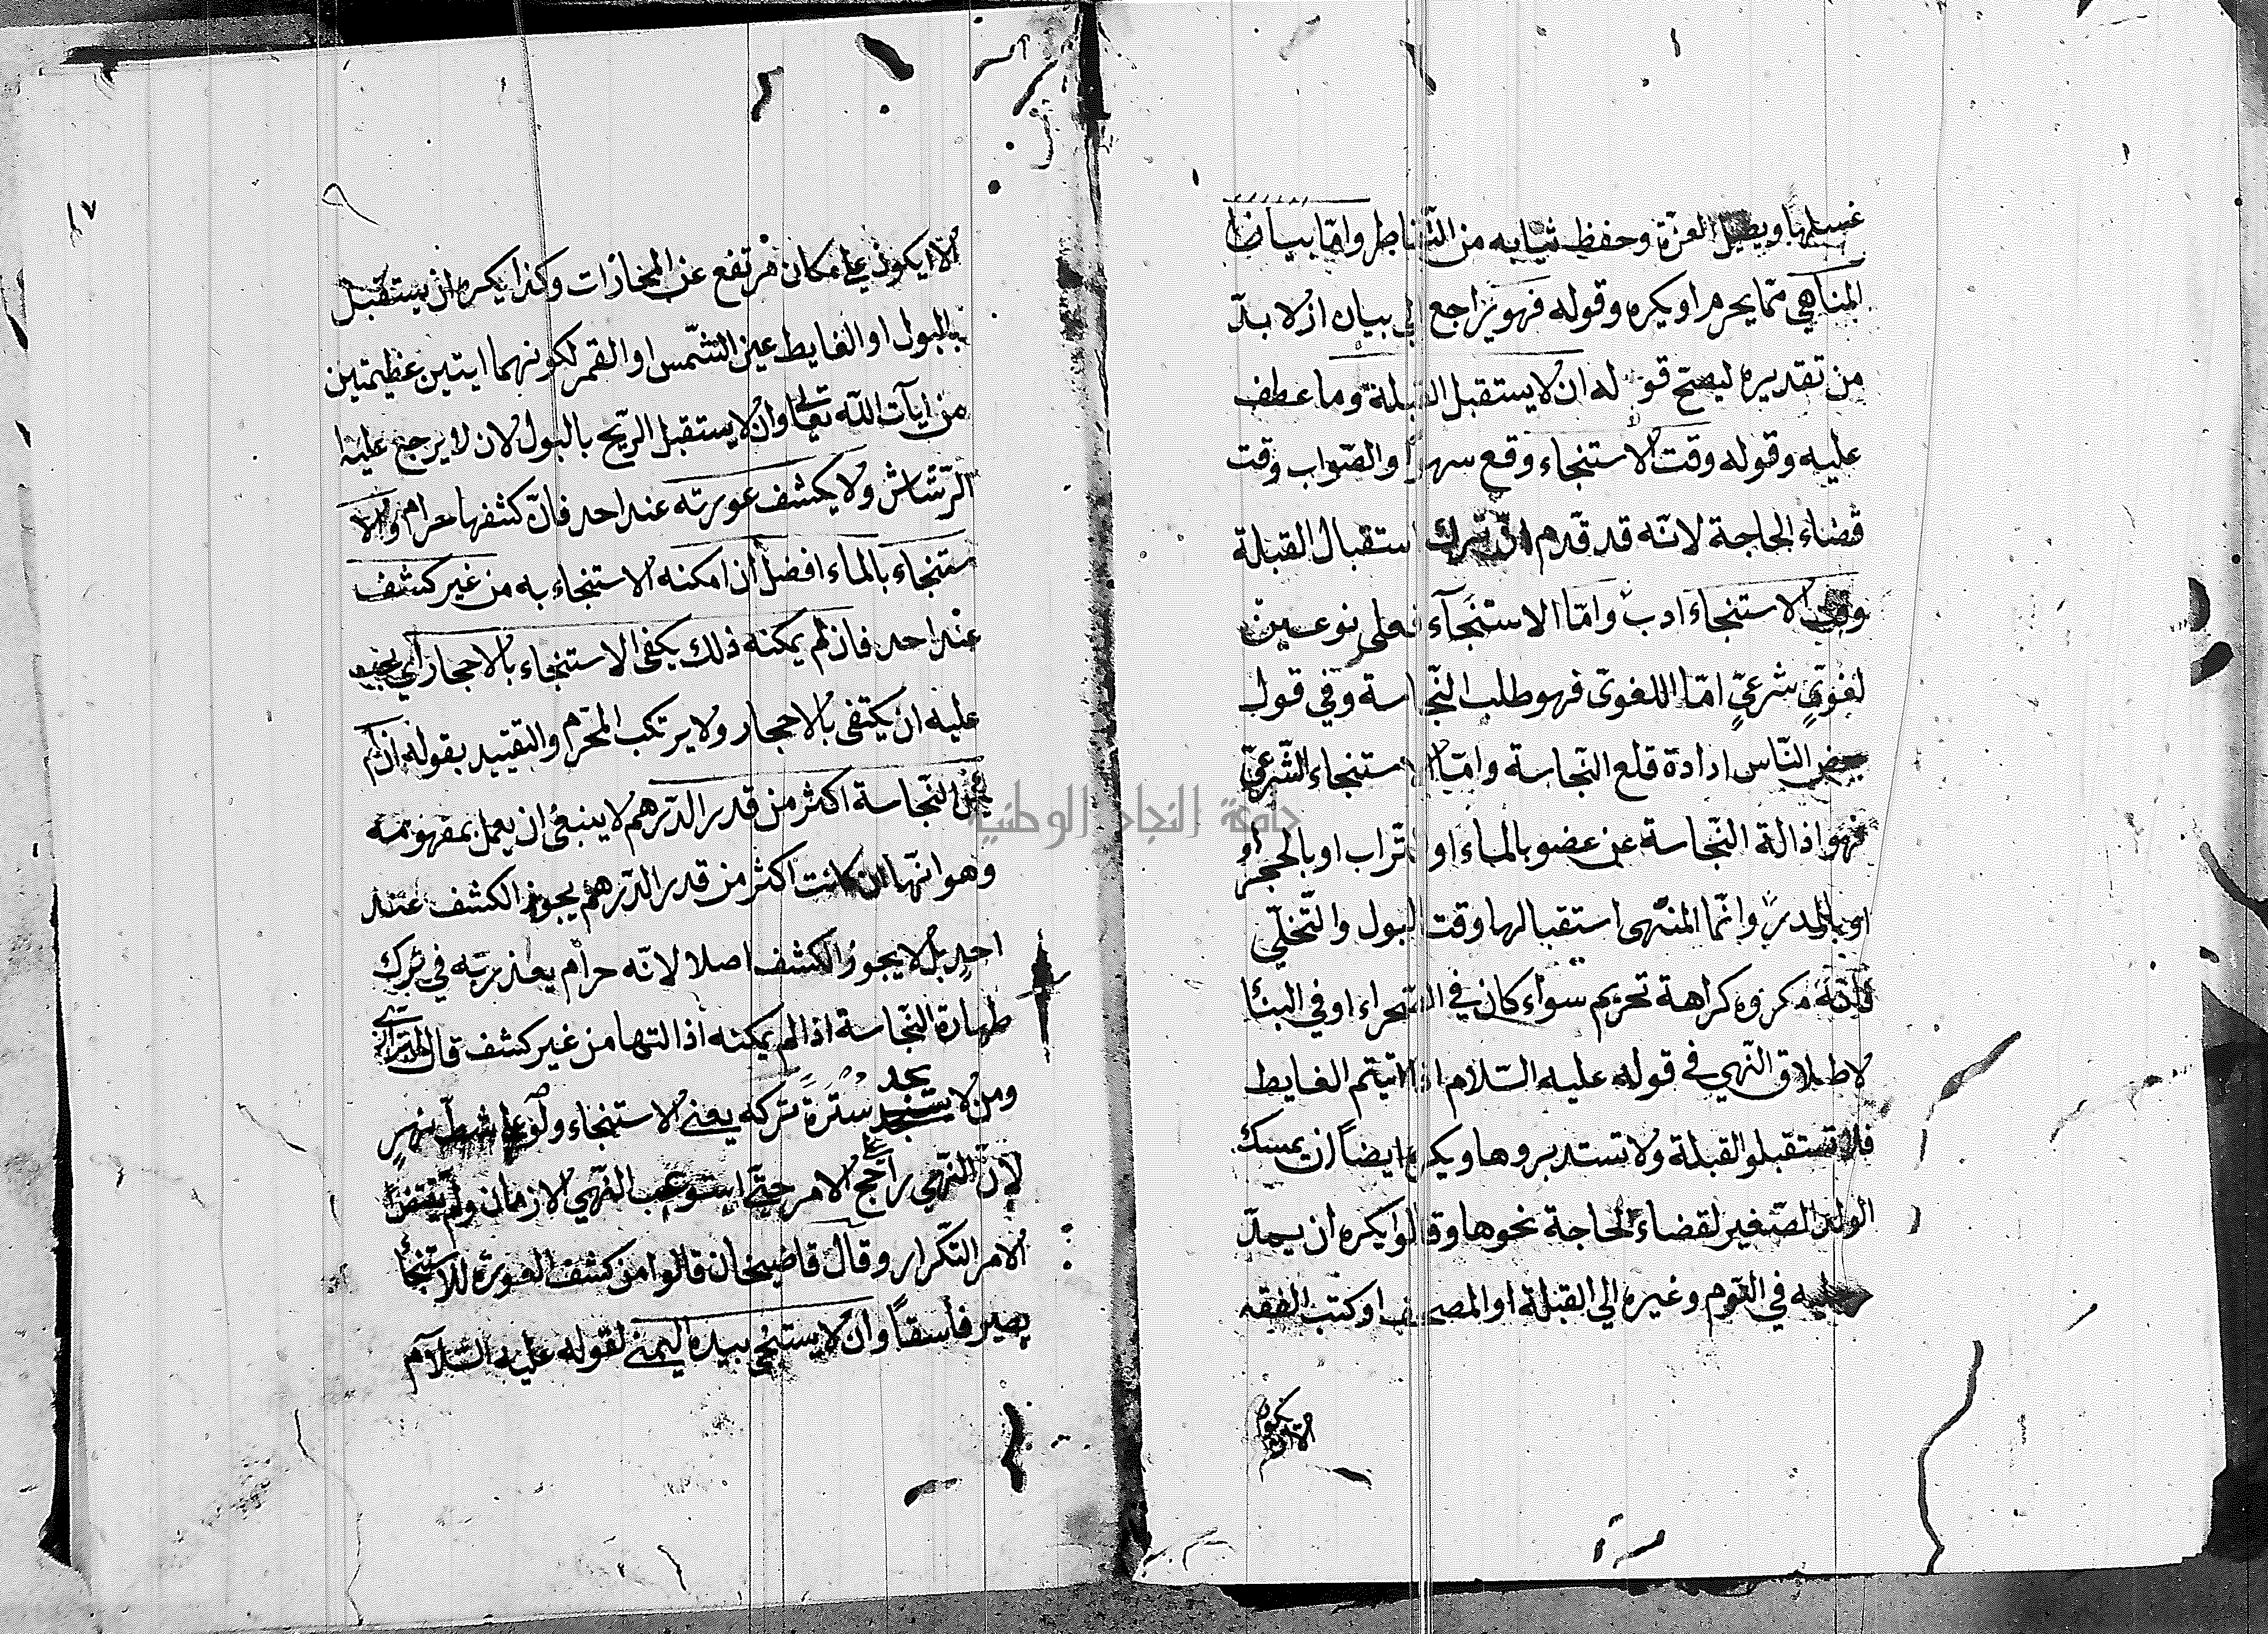 غسلها ويطيل الغرة وحفظ ثيابه من التقاطر واما بيان
المناهي مما يحرم او يكره وقوله فهو راجع الى بيان اذ لا بدّ
من تقديره ليصح قوله ان لا يستقبل القبلة وما عطف
عليه وقوله وقت الاستنجاء وقع سهوًا والصّواب وقت
قضاء الحاجة لانّه قد قدّم انّ ترك استقبال القبلة
وقت الاستنجاء ادب وامّا الاستنجآء فعلى نوعين
لغويّ شرعيّ امّا اللغويّ فهو طلب النّجاسة وفي قول
بعض النّاس ارادة قلع النّجاسة وامّا الاستنجاء الشّرعيّ
فهو اذالة النّجاسة عن عضو بالماء او التّراب او بالحجر او
او بالمدر وانّما المنهى استقبالها وقت البول والتّخلّي
فانّه مكروه كراهة تحريم سواء كان في الصّحراء او في البنا
لاطلاق النّهي في قوله عليه السّلام اذا اتيتم الغايط
فلا تستقبلوا القبلة ولا تستدبروها ويكره ايضاً ان يمسك
الولد الصّغير لقضاء الحاجة نحوها وقالوا يكره ان يمدّ
رجليه في النّوم وغيره الى القبلة او المصحف او كتب الفقه
٩
١٧
الا ان يكون على مكان مرتفع عن المحازات وكذا يكره ان يستقبل
بالبول او الغايط عين الشّمس او القمر لكونهما ايتين عظيمتين
من ايات اللّه تعالى وان لا يستقبل الرّيح بالبول لان لا يرجع عليه
الرّشاش ولا يكشف عورته عند احد فانّ كشفها حرام والا
ستنجاء بالماء افضل ان امكنه الاستنجاء به من غير كشف
عند احد فان لم يمكنه ذلك يكفى الاستنجاء بالاحجار اي يجب
عليه ان يكتفى بالاحجار ولا يرتكب المحرّم والتقييد بقوله ان لم
تكن النّجاسة اكثر من قدر الدّرهم لا ينبغى ان يعمل بمفهومه
وهو انّها ان كانت اكثر من قدر الدّرهم يجوز الكشف عند
احدٍ بل لا يجوز الكشف اصلا لانّه حرام يعذر به في ترك
طهارة النّجاسة اذا لم يمكنه اذالتها من غير كشف قال البزازي
ومن لا يجد سترة تركه يعنى الاستنجاء ولو على شطّ نهرٍ
لانّ النّهي راجح على الامر حتّى استوعب النّهي الازمان ولم يقتض
الامر التّكرار وقال قاضيخان قالوا من كشف العورة للاستنجا
يصير فاسقاً وان لا يستنجى بيده اليمنى لقوله عليه السّلام
جامعة النجاح الوطنية